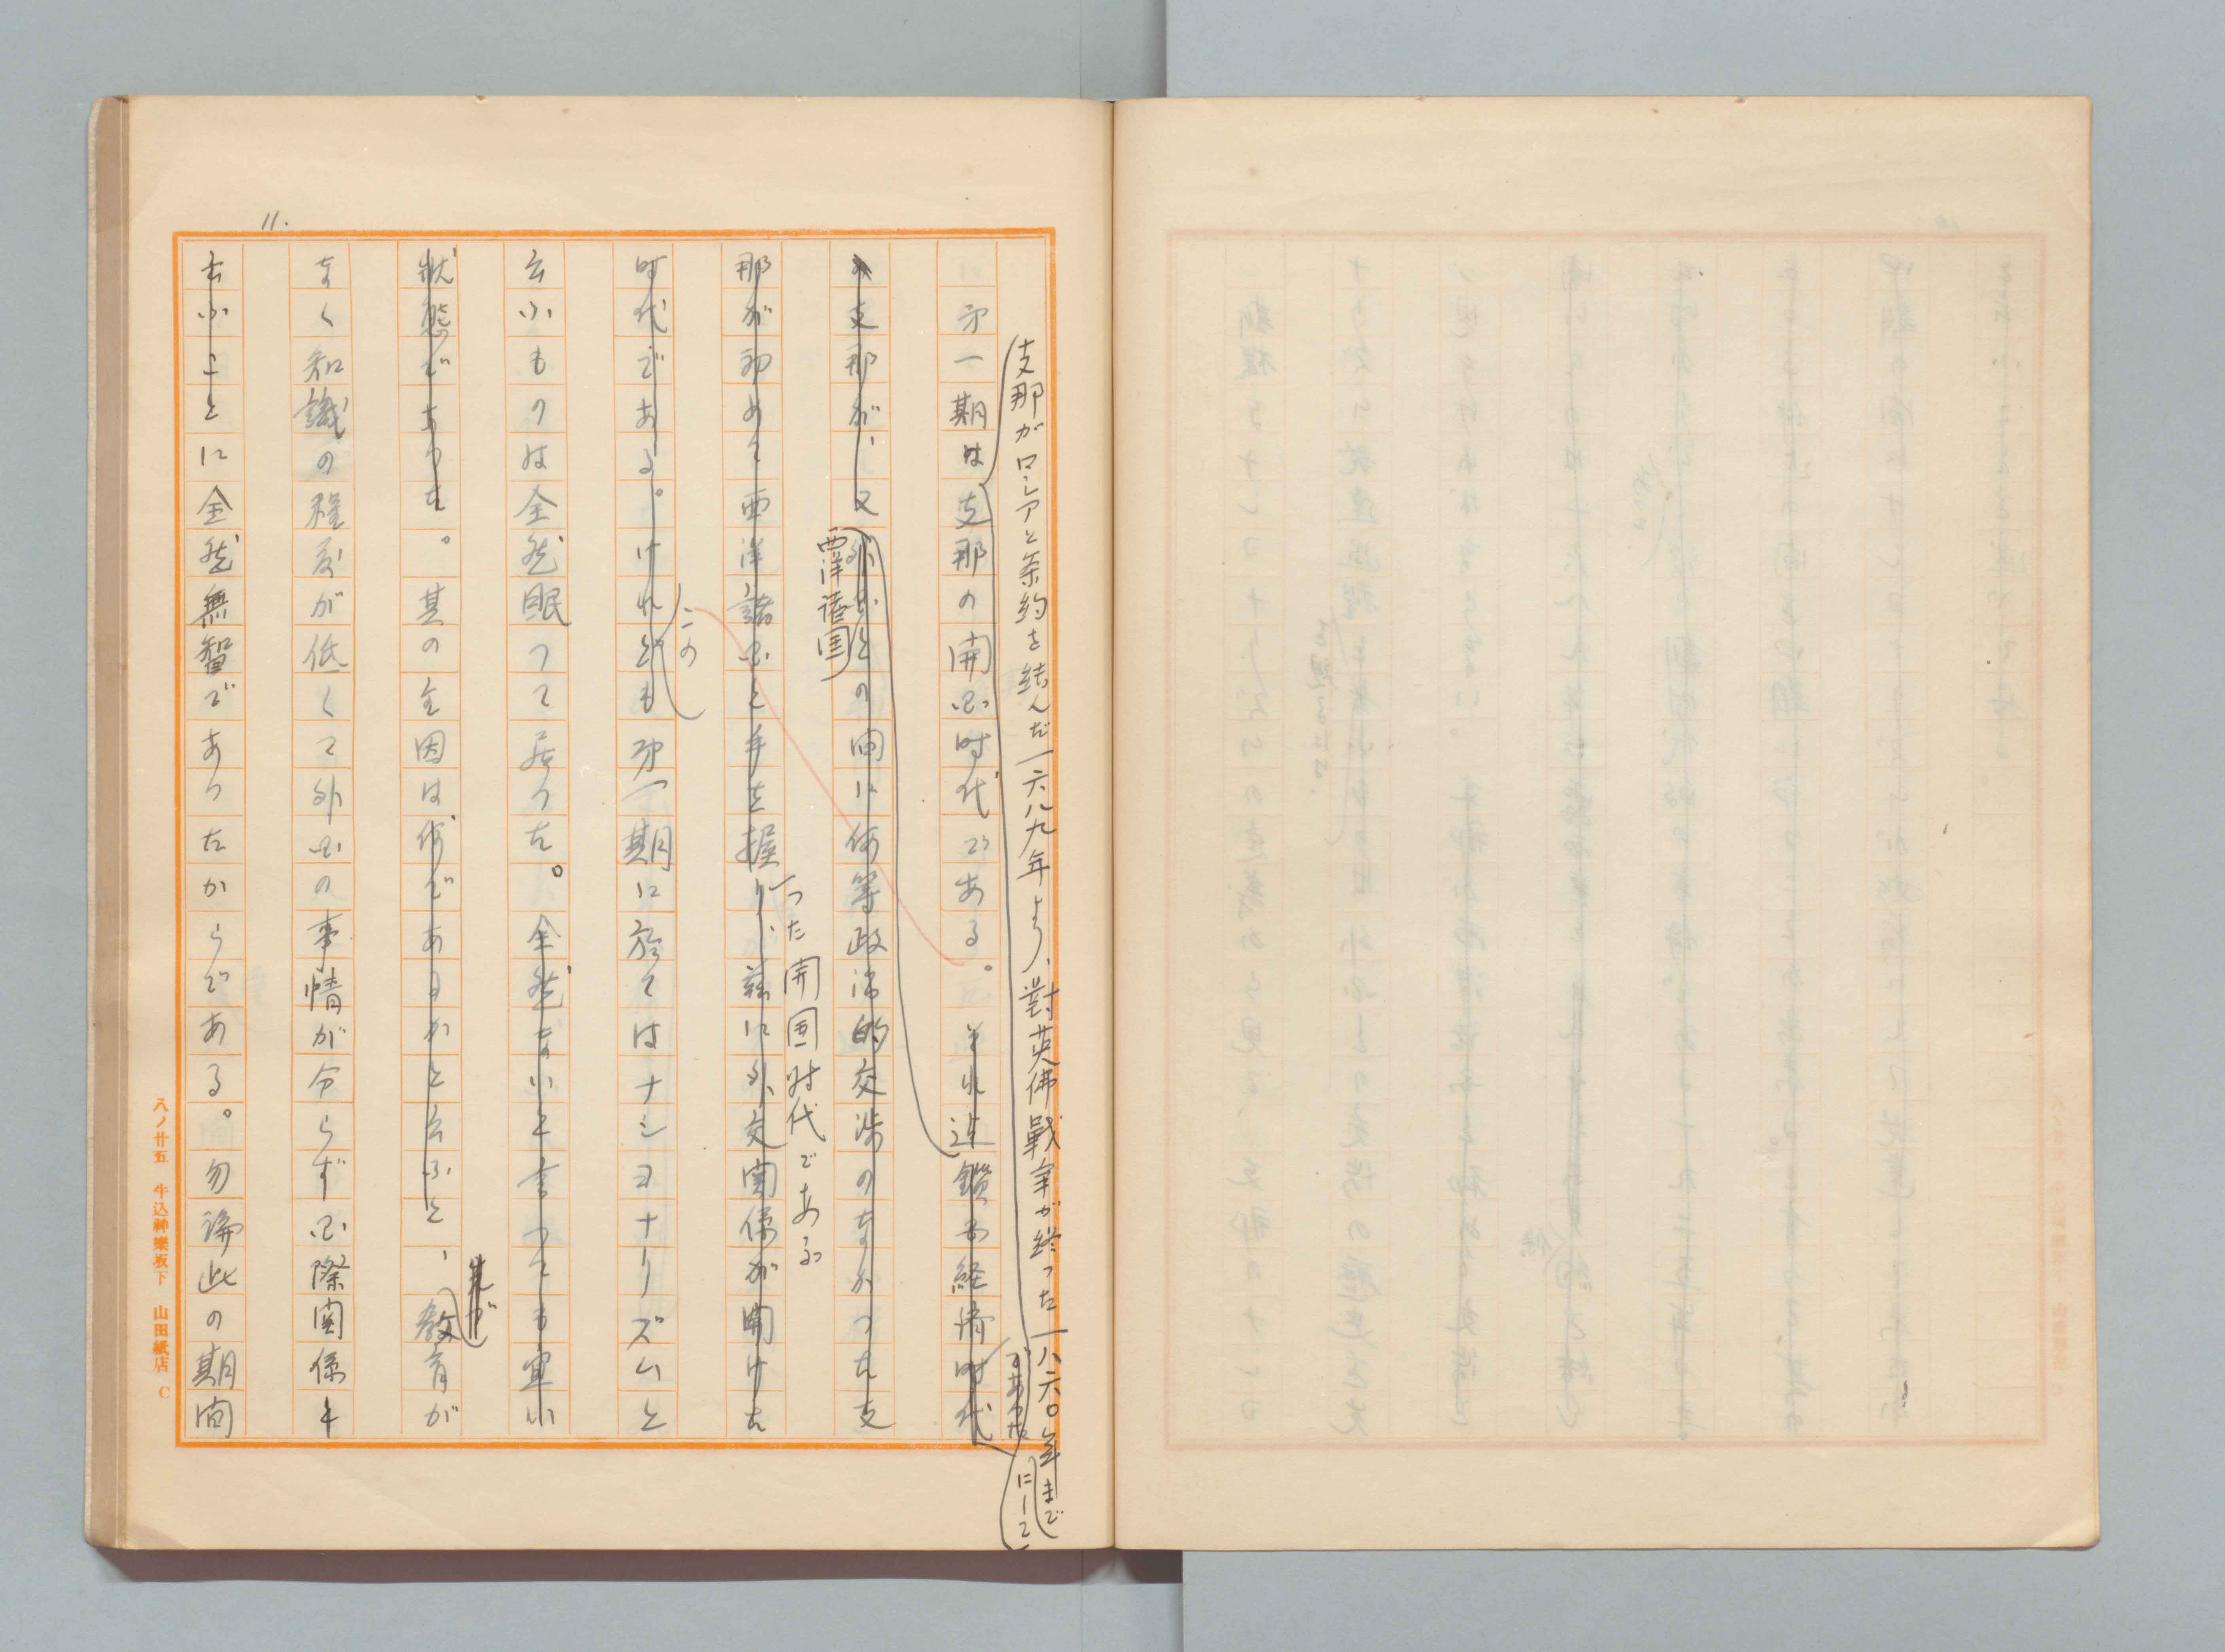 11.
支那がロシアと条約を結んだ一六八九年より、對英佛戰争が終った一八六〇年まで
にして
であった
第一期は支那の開国時代である。それ迄鎖国経済時代
支那が、又外国との間に何等政治的交渉のなかった支
西洋諸国
那が初めて西洋諸国と手を握り、茲に外交関係が開けた
った開国時代である
時代である。けれども第一期に於てはナショナリズムと
この
云ふものは全然眠って居った。全然ないと言っても宜い
状態であった。其の主因は何であるかと云ふと、教育が
其が
なく知識の程度が低くて外国の事情が分らず国際関係と
云ふことに全然無智であったからである。勿論此の期間
八ノ廿五 牛込神樂坂下 山田紙店 C